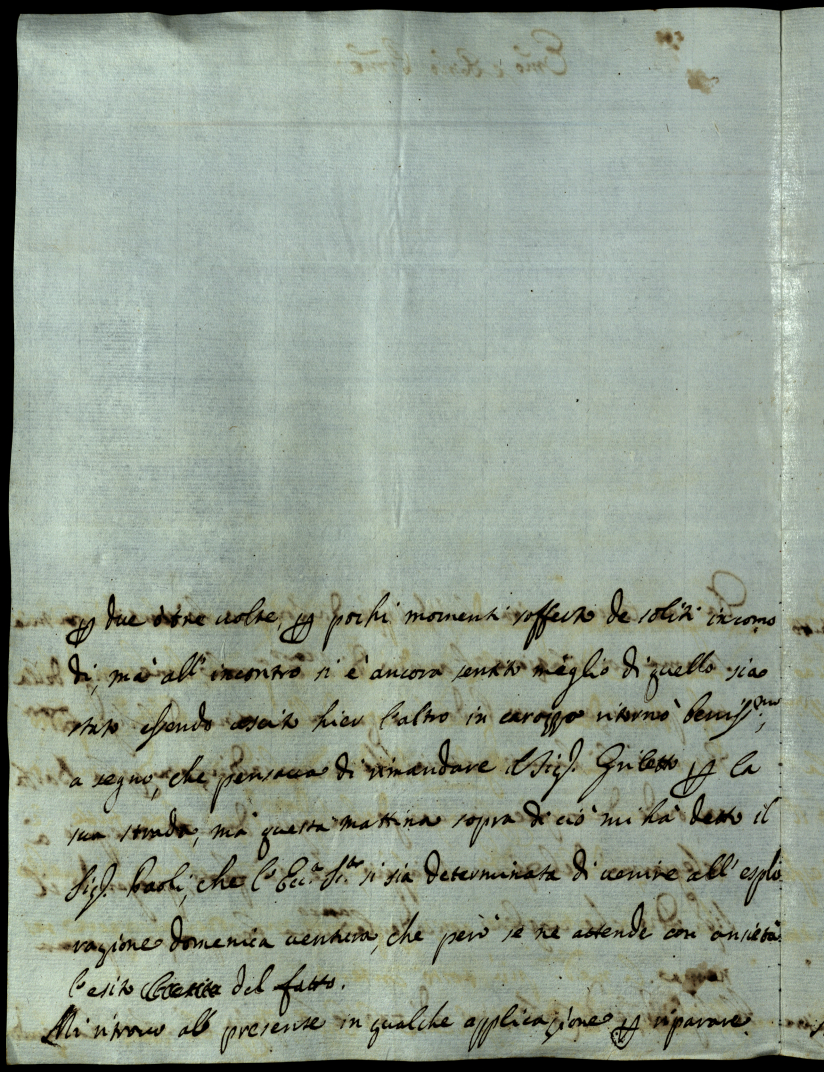 ꝑ due ò tre uolte, ꝑ pochi momenti sofferto de soliti incomo
di, ma all'incontro si è ancora sentito meglio di quello sia
stato essendo uscito hier l'altro in carozza ritornò beniss.mo,
a segno, che pensaua di rimandare il Sig.r Griletto ꝑ la
sua strada, mà questa mattina sopra di ciò mi hà detto il
Sig.r Paoli, che l'Ecc.a S. si sia determinata di uenire all'esplo
razione domenica uentura, che però se ne attende con ansietà
l'esito del fatto.
Mi ritrouo al presente in qualche applicazione ꝑ riparare